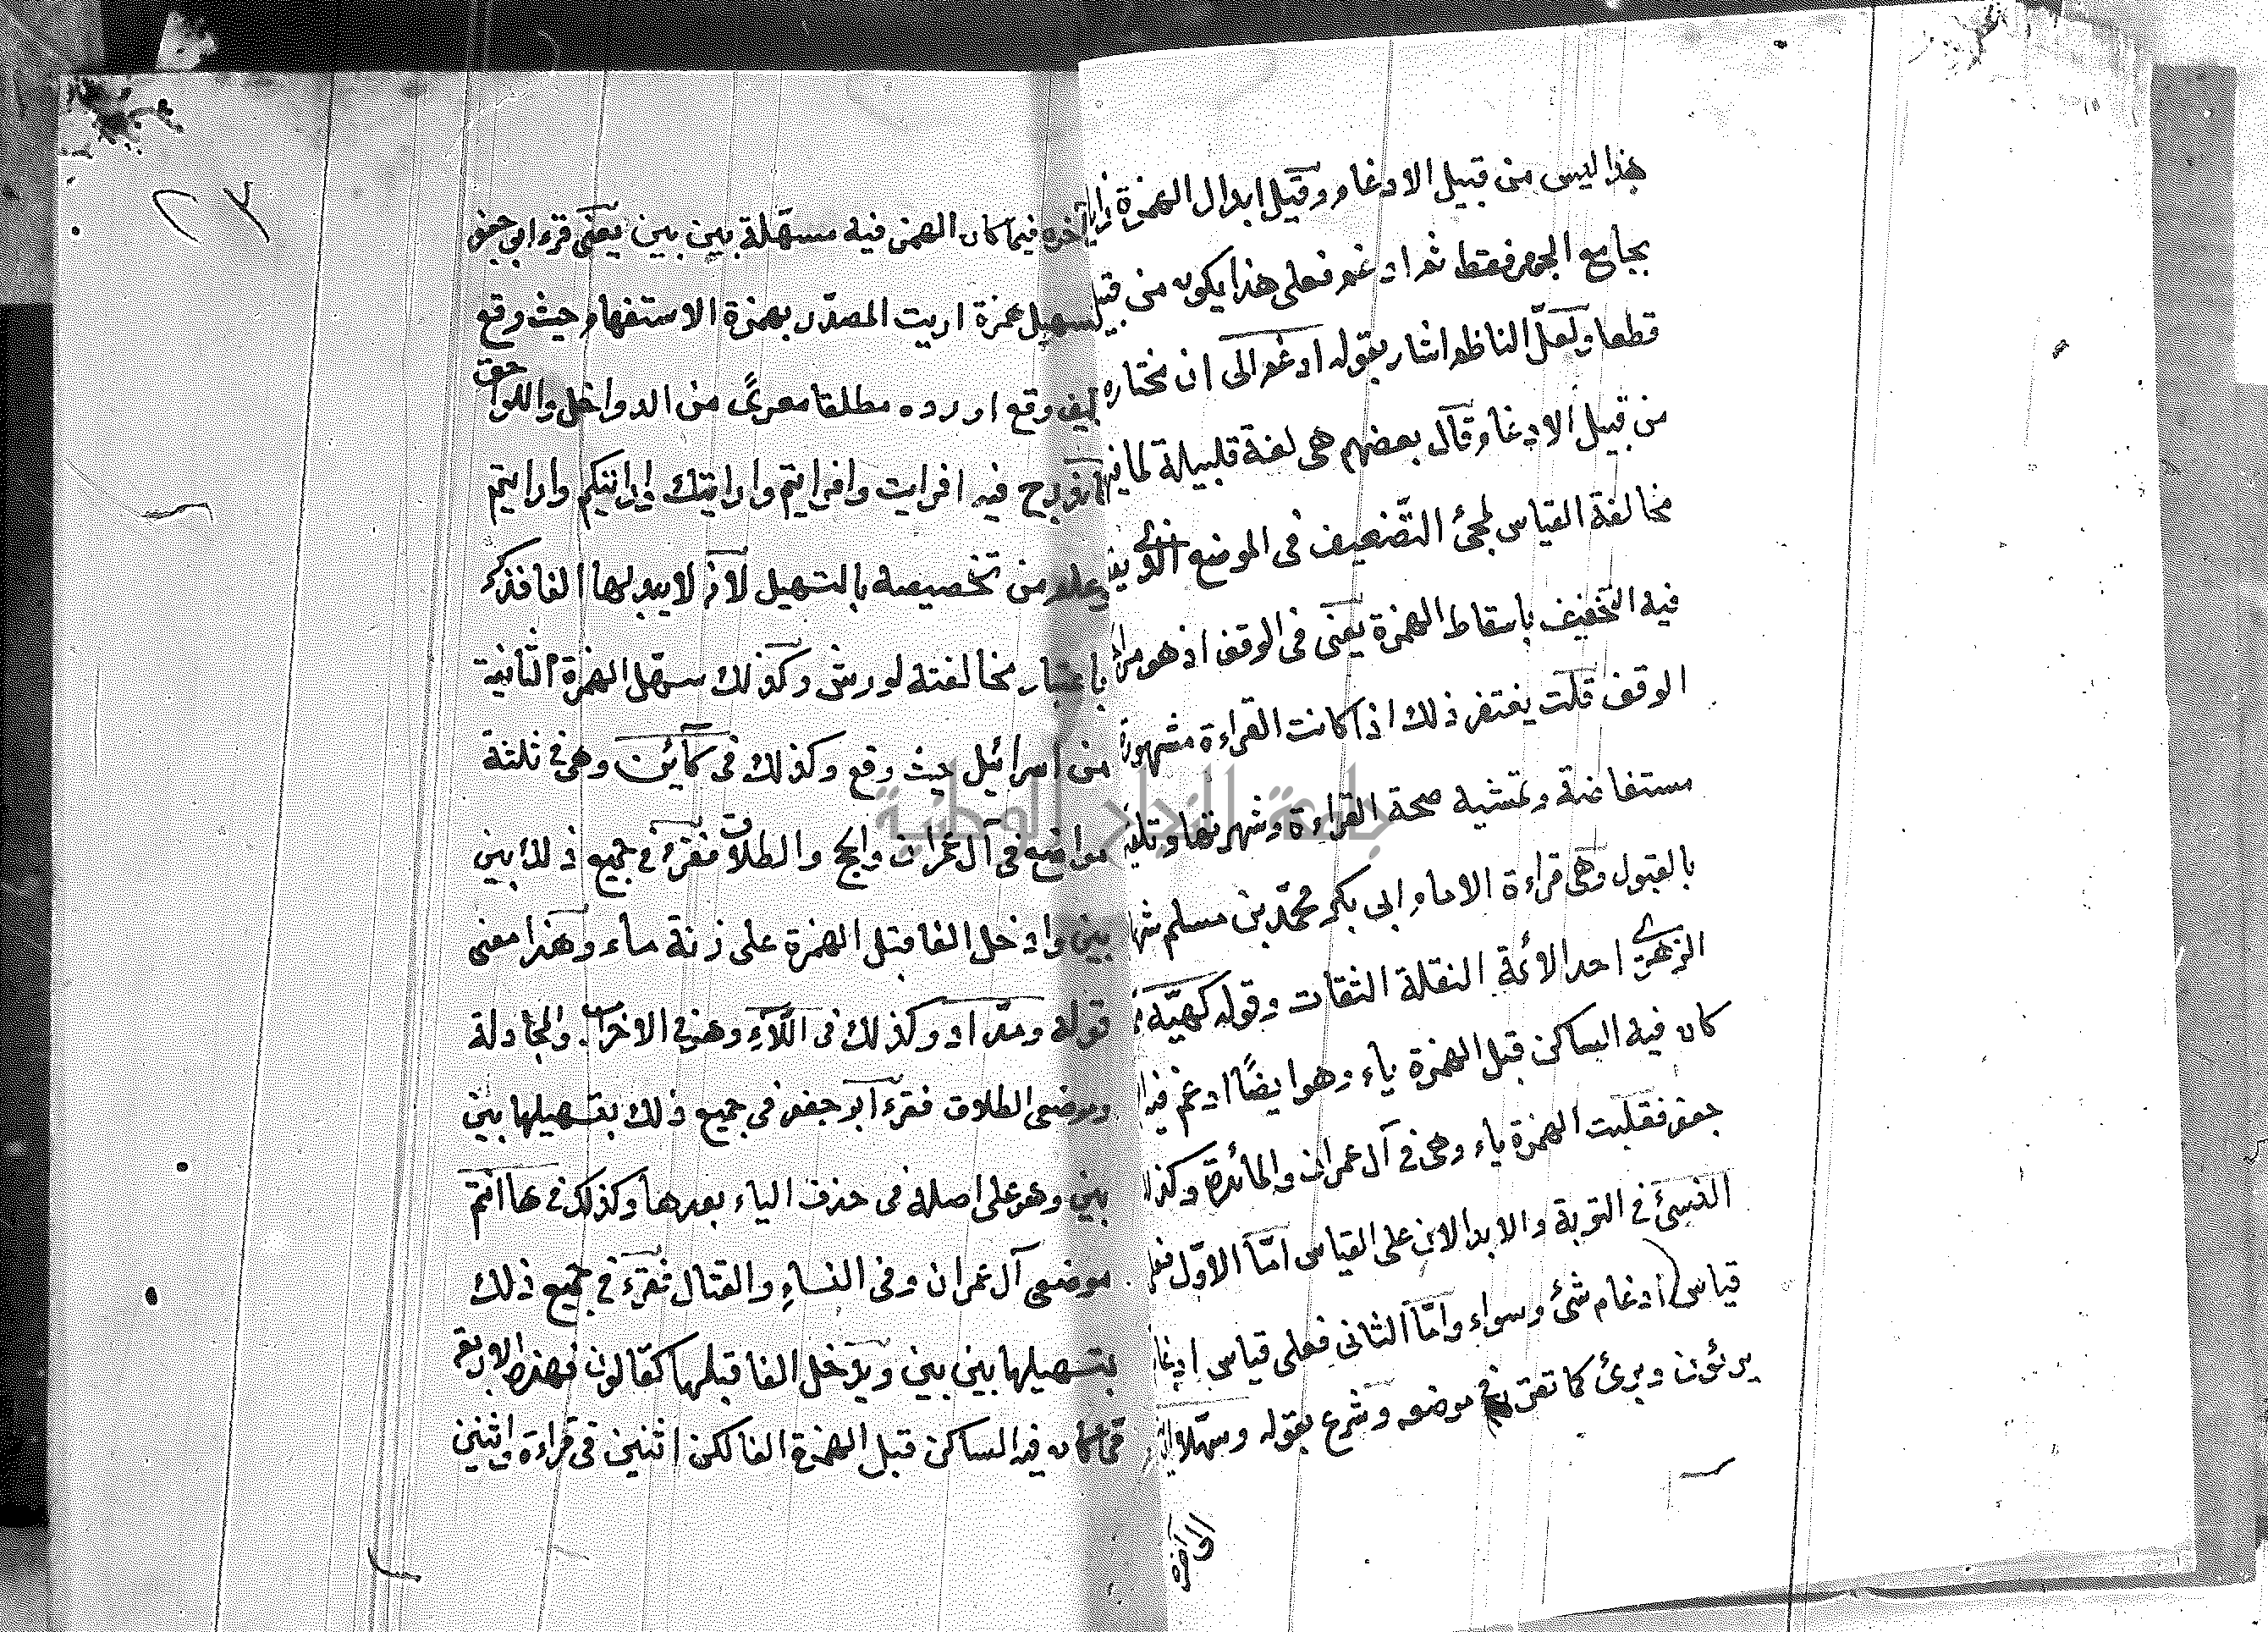 هذا ليس من قبيل الادغام وقيل ابدال الهمزة زايا
بجامع الجهر فقط ثم ادغم فعلى هذا يكون من قبيل
قطعا ولعل الناظم اشار بقوله ادغم الى ان مختاره
من قبيل الادغام وقال بعضهم هى لغة قليلة لما فيها
مخالفة القياس لمجئ التضعيف فى الموضع الذي
فيه التخفيف باسقاط الهمزة يعنى فى الوقف اذ هو
الوقف قلت يغتفر ذلك اذا كانت القراءة مشهورة
مستفاضة وتمشية صحة القراءة وشهرتها
بالقبول وهى قراءة الامام ابى بكر محمّد بن مسلم
الزهري احد الائمة النقلة الثقات وقوله كهيّة
كان فيه الساكن قبل الهمزة ياء وهو ايضًا ادغم فيه
جعفر فقلبت الهمزة ياء وهى فى آل عمران والمائدة وكذا
النسئ فى التوبة والابدالان على القياس امّا الاوّل
قياس ادغام شئ وسواء وامّا الثانى فعلى قياس
بريئون وبرئ كما تقرر فى موضعه وشرع بقوله وسهّلا
الى آخره
آخره فيما كان الهمز فيه مسهّلة بين بين يعنى قرء ابو جعفر
بتسهيل همزة اريت المصدّر بهمزة الاستفهام حيث وقع
كيف وقع اورده مطلقا معرىً من الدواخل واللواحق
فاندرج فيه افرايت وافرايتم وارايتك وارايتكم وارايتم
وعلم من تخصيصه بالتسهيل لانه لا يبدلها الفا فذكره
باعتبار مخالفته لورش وكذلك سهّل الهمزة الثانية
من اسرائيل حيث وقع وكذلك فى كآئن وهى فى ثلثة
مواضع فى آل عمران والحج والطلاق فقرء فى جميع ذلك بين
بين وادخل الفا قبل الهمزة على زنة ماء وهذا معنى
قوله ومدّ اد وكذلك فى اللآءِ وهو فى الاحزاب والمجادلة
وموضعى الطلاق فقرء ابو جعفر فى جميع ذلك بتسهيلها بين
بين وهو على اصله فى حذف الياء بعدها وكذلك فى ها انتم
موضعى آل عمران وفى النساءِ والقتال فقرء فى جميع ذلك
بتسهيلها بين بين ويدخل الفا قبلها كقالون فهذه الاربعة
ممّا كان فيه الساكن قبل الهمزة الفا لكن اثنين فى قراءة واثنين
٢٣
جامعة النجاح الوطنية